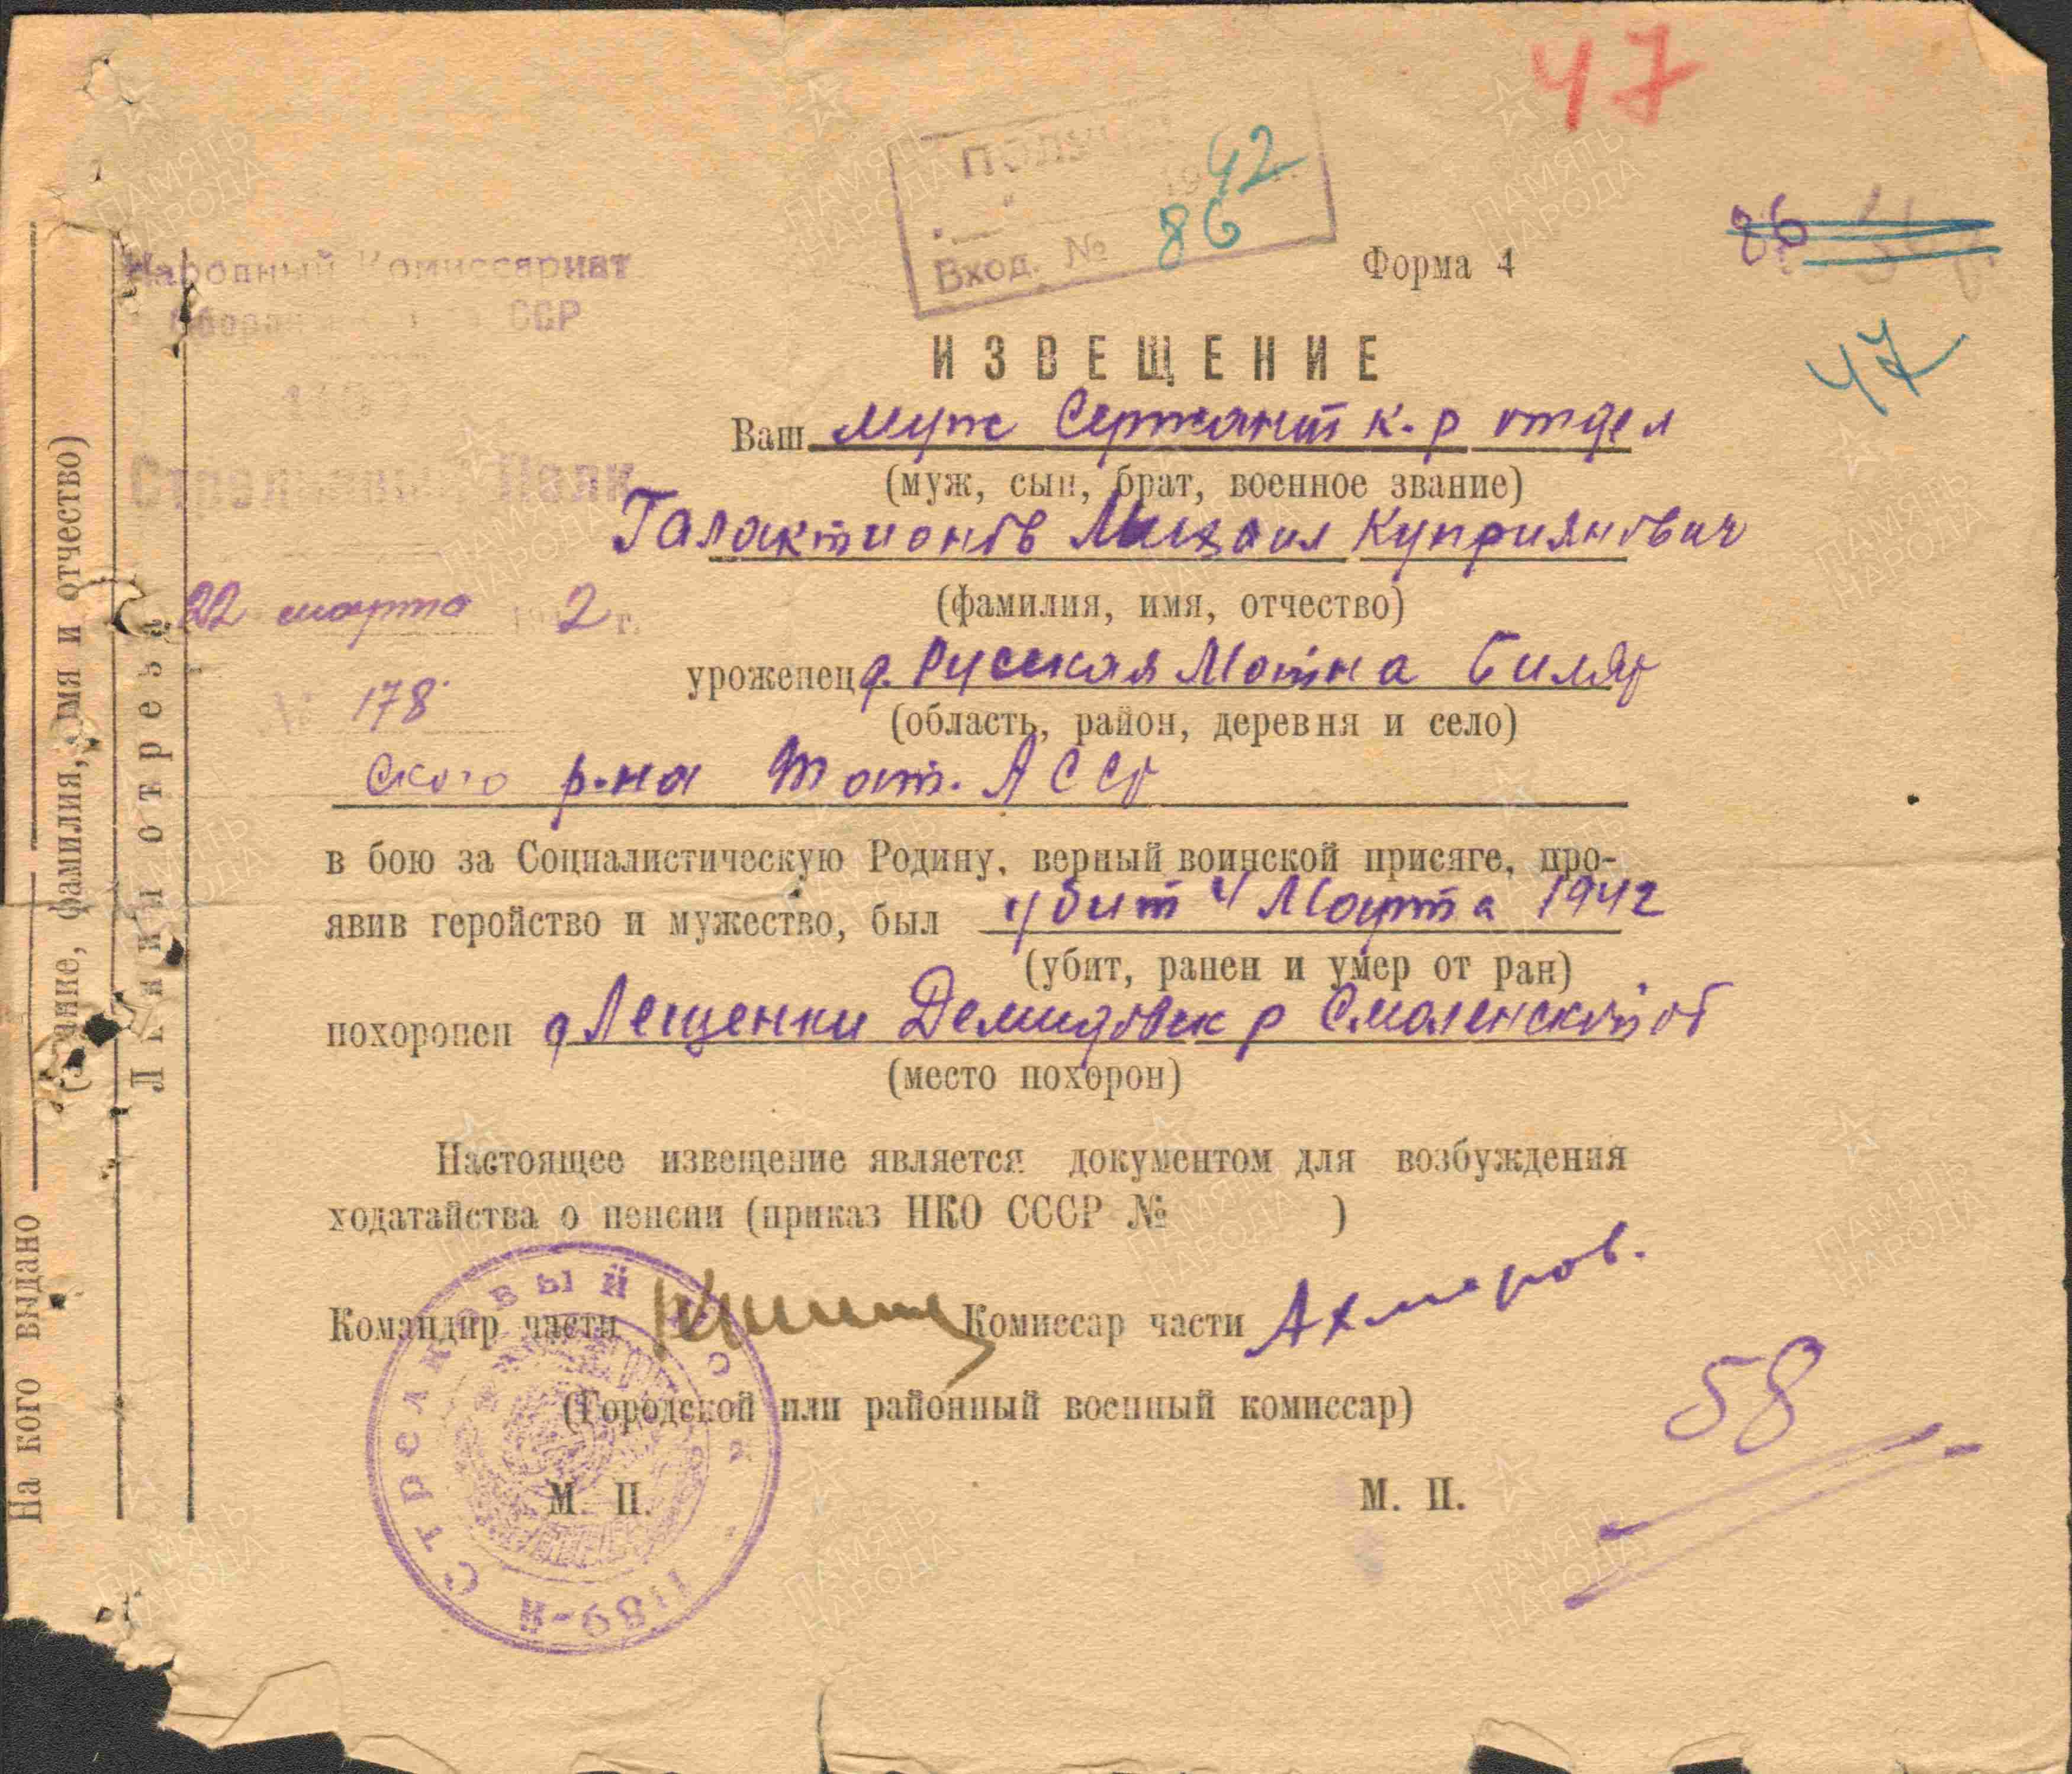 47
ПОЛУЧ
1942 г.
Вход. № 86
86
Форма 4
47
Народный Комиссариат
ССР
ИЗВЕЩЕНИЕ
Ваш муж Сержант к-р отдел
(муж, сын, брат, военное звание)
Полк
Галактионов Михаил Куприянович
(фамилия, имя, отчество)
22 марта 1942 г.
уроженец д. Русская Матна Биляр
(область, район, деревня и село)
№ 178
ского р-на Тат. АССР
в бою за Социалистическую Родину, верный воинской присяге, про-
явив геройство и мужество, был убит 4 Марта 1942
(убит, ранен и умер от ран)
похоронен д Лещенки Демидовск р Смоленской об
(место похорон)
Настоящее извещение является документом для возбуждения
ходатайства о пенсии (приказ НКО СССР № )
Командир части Комиссар части Ахмеров.
(Городской или районный военный комиссар)
58
М. П. М. П.
1189-й Стрелковый Полк
На кого выдано
(звание, фамилия, имя и отчество)
Линия отреза
ПАМЯТЬ НАРОДА